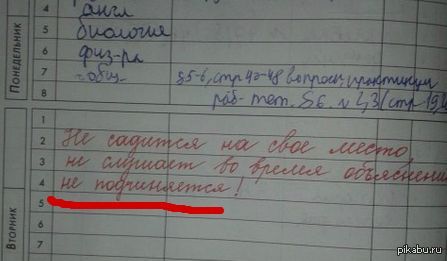 ПОНЕДЕЛЬНИК
4 англ
5 биология
6 физ-ра
7 общ- §5-6, стр 42-48 вопросы, практикум
8 раб- тет. §6. N 2,3 (стр 19,
ВТОРНИК
1
2 Не садится на свое место
3 не слушает во время объяснени
4 не подчиняется!
5
6
7
pikabu.ru